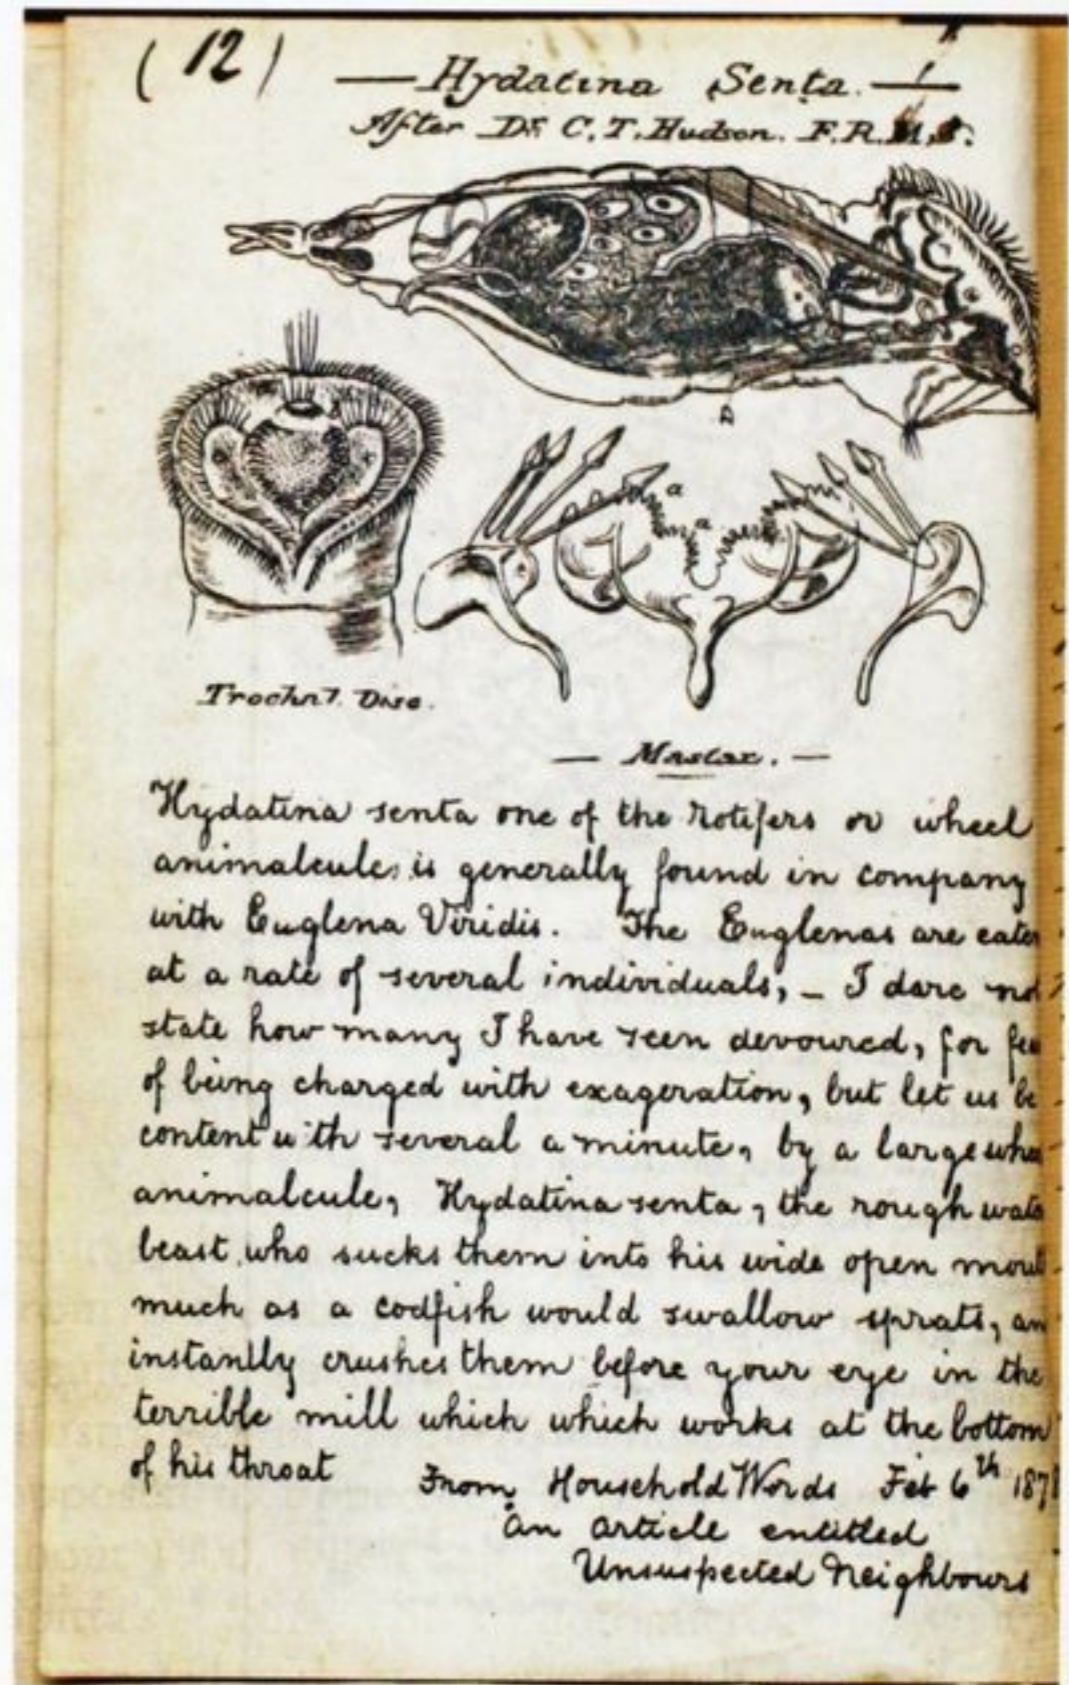 (12)
— Hydatina Senta. —
After Dr. C. T. Hudson. F.R.M.S.
A
a
a
Trochal. Disc.
— Mastax. —
Hydatina senta one of the Rotifers or wheel
animalcules is generally found in company
with Euglena Viridis. The Euglenas are eaten
at a rate of several individuals, – I dare not
state how many I have seen devoured, for fea
of being charged with exageration, but let us be
content with several a minute, by a large whe
animalcule, Hydatina senta, the rough wate
beast who sucks them into his wide open mout
much as a codfish would swallow sprats, an
instantly crushes them before your eye in the
terrible mill which which works at the bottom
of his throat From Household Words Feb 6th 187
an article entitled
Unsuspected Neighbours